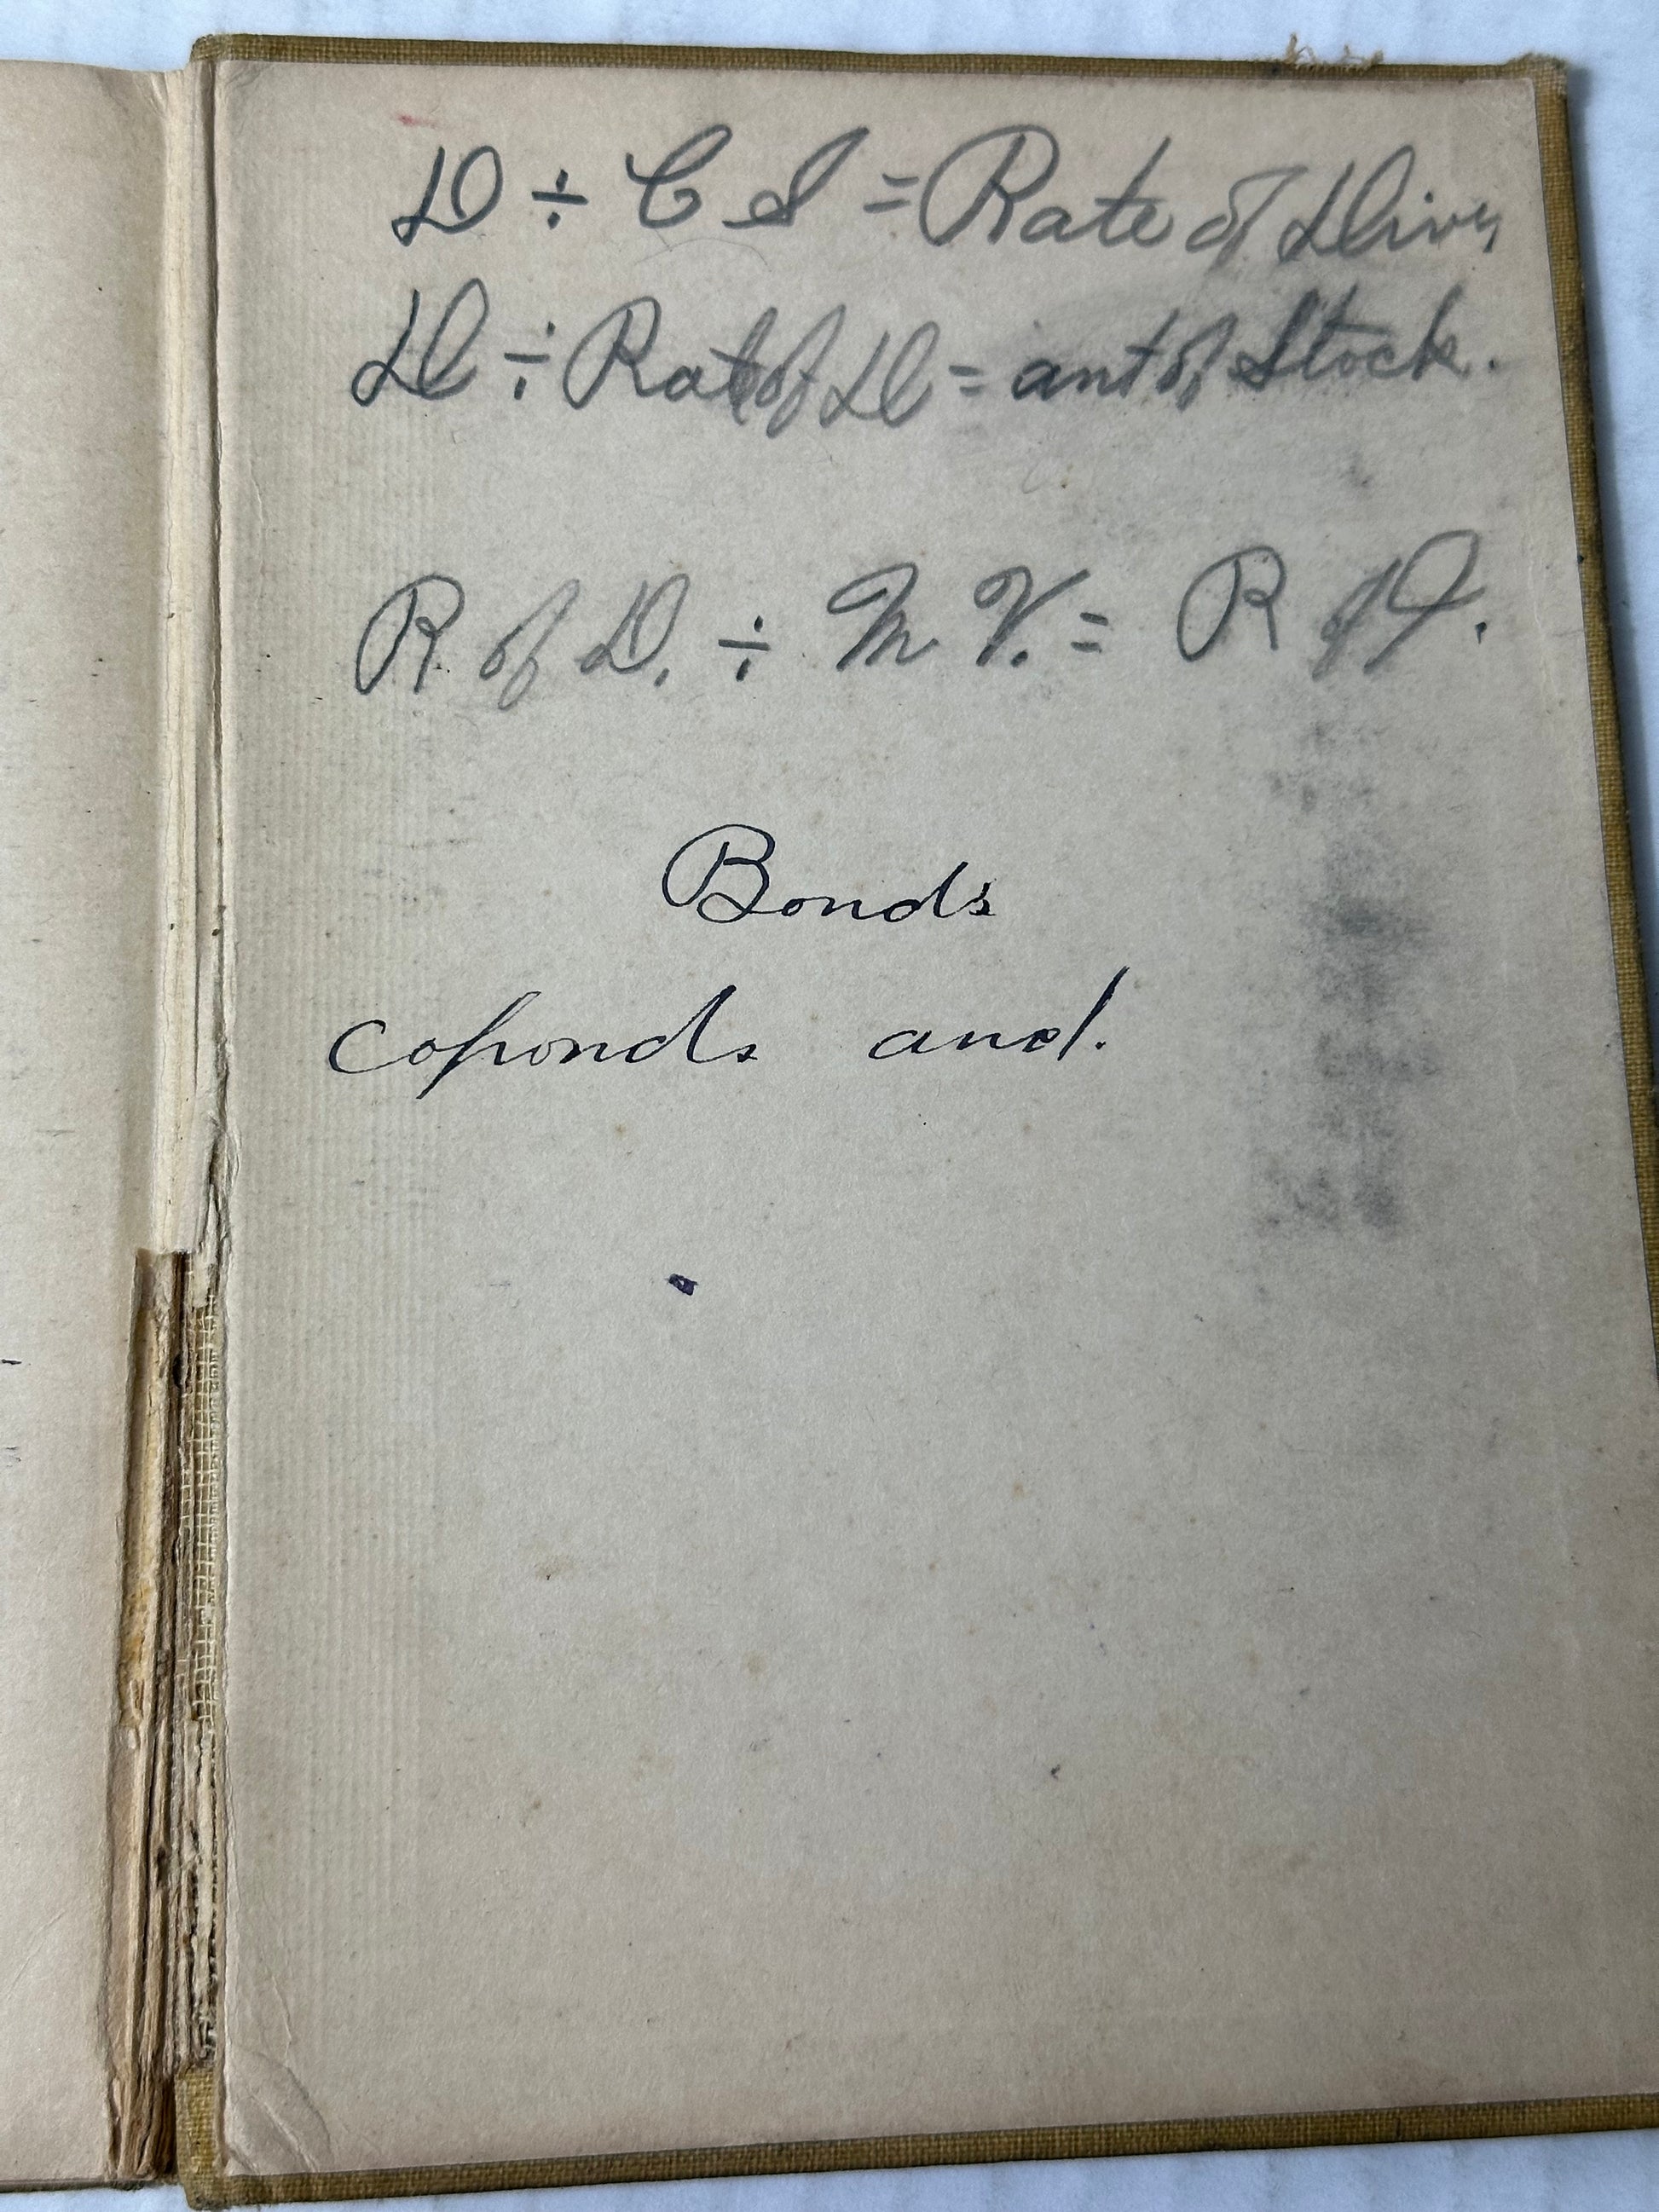 D ÷ C S = Rate of Div,
D ÷ Rat of D = amt of Stock.
R of D. ÷ M V. = R of I.
Bonds
coponds and.